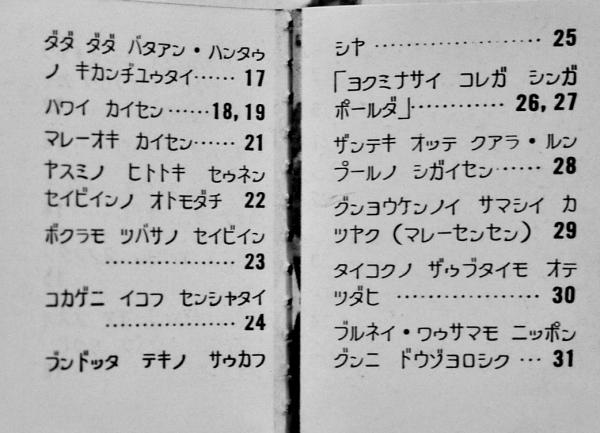 ダダ ダダ バタアン・ハンタゥ
ノ キカンヂユゥタイ…… 17
ハワイ カイセン……18,19
マレーオキ カイセン…… 21
ヤスミノ ヒトトキ セゥネン
セイビインノ オトモダチ 22
ボクラモ ツバサノ セイビイン
……………… 23
コカゲニ イコフ センシャタイ
……………… 24
ブンドッタ テキノ サゥカフ
シヤ ………………… 25
「ヨクミナサイ コレガ シンガ
ポールダ」………… 26,27
ザンテキ オッテ クアラ・ルン
プールノ シガイセン…… 28
グンヨウケンノイ サマシイ カ
ツヤク(マレーセンセン) 29
タイコクノ ザゥブタイモ オテ
ツダヒ ……………… 30
ブルネイ・ワゥサマモ ニッポン
グンニ ドウゾヨロシク … 31